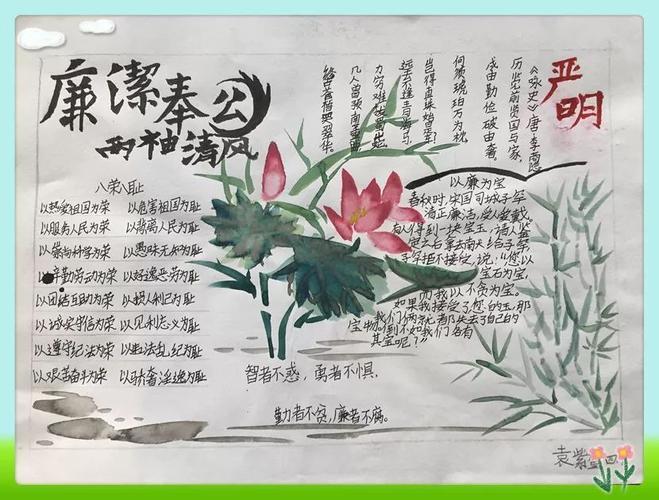 廉潔奉公
两袖清风
严明
《咏史》唐·李商隐
历览前贤国与家,
成由勤俭破由奢。
何须琥珀方为枕,
岂得真珠始是车?
远去不逢青海马,
力穷难拔蜀山蛇。
几人曾预南熏曲,
终古苍梧哭翠华。
八荣八耻
以热爱祖国为荣 以危害祖国为耻
以服务人民为荣 以背离人民为耻
以崇尚科学为荣 以愚昧无知为耻
以辛勤劳动为荣 以好逸恶劳为耻
以团结互助为荣 以损人利己为耻
以诚实守信为荣 以见利忘义为耻
以遵守纪法为荣 以违法乱纪为耻
以艰苦奋斗为荣 以骄奢淫逸为耻
以廉为宝
春秋时,宋国司城子罕
清正廉洁,受人爱戴。
有人得到一块宝玉,请人鉴
定之后拿去献给子罕,
子罕拒不接受,说:"您以
宝石为宝,
而我以不贪为宝。
如果我接受了您的玉,那
我们俩就都失去了自己的
宝物。倒不如我们各有
其宝呢?"
智者不惑,勇者不惧,
勤者不贪,廉者不腐。
袁紫 四